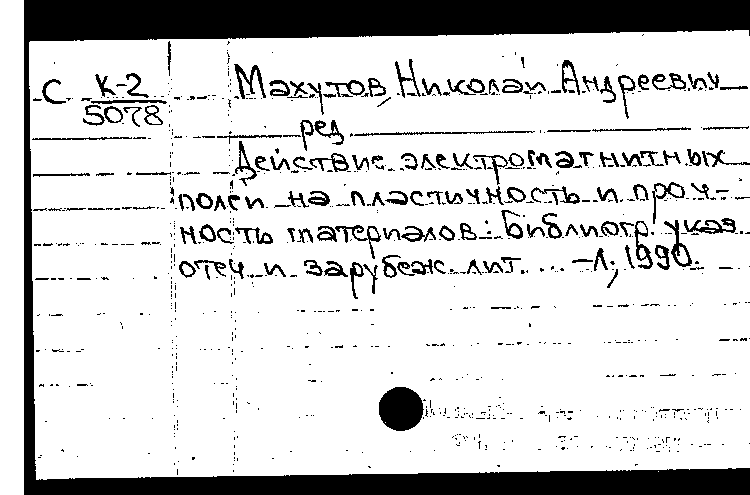 С К-2
5078
Махутов, Николай Андреевич
ред.
Действие электромагнитных
полей на пластичность и проч-
ность материалов: Библиогр. указ.
отеч. и зарубеж. лит. ... –Л., 1990.